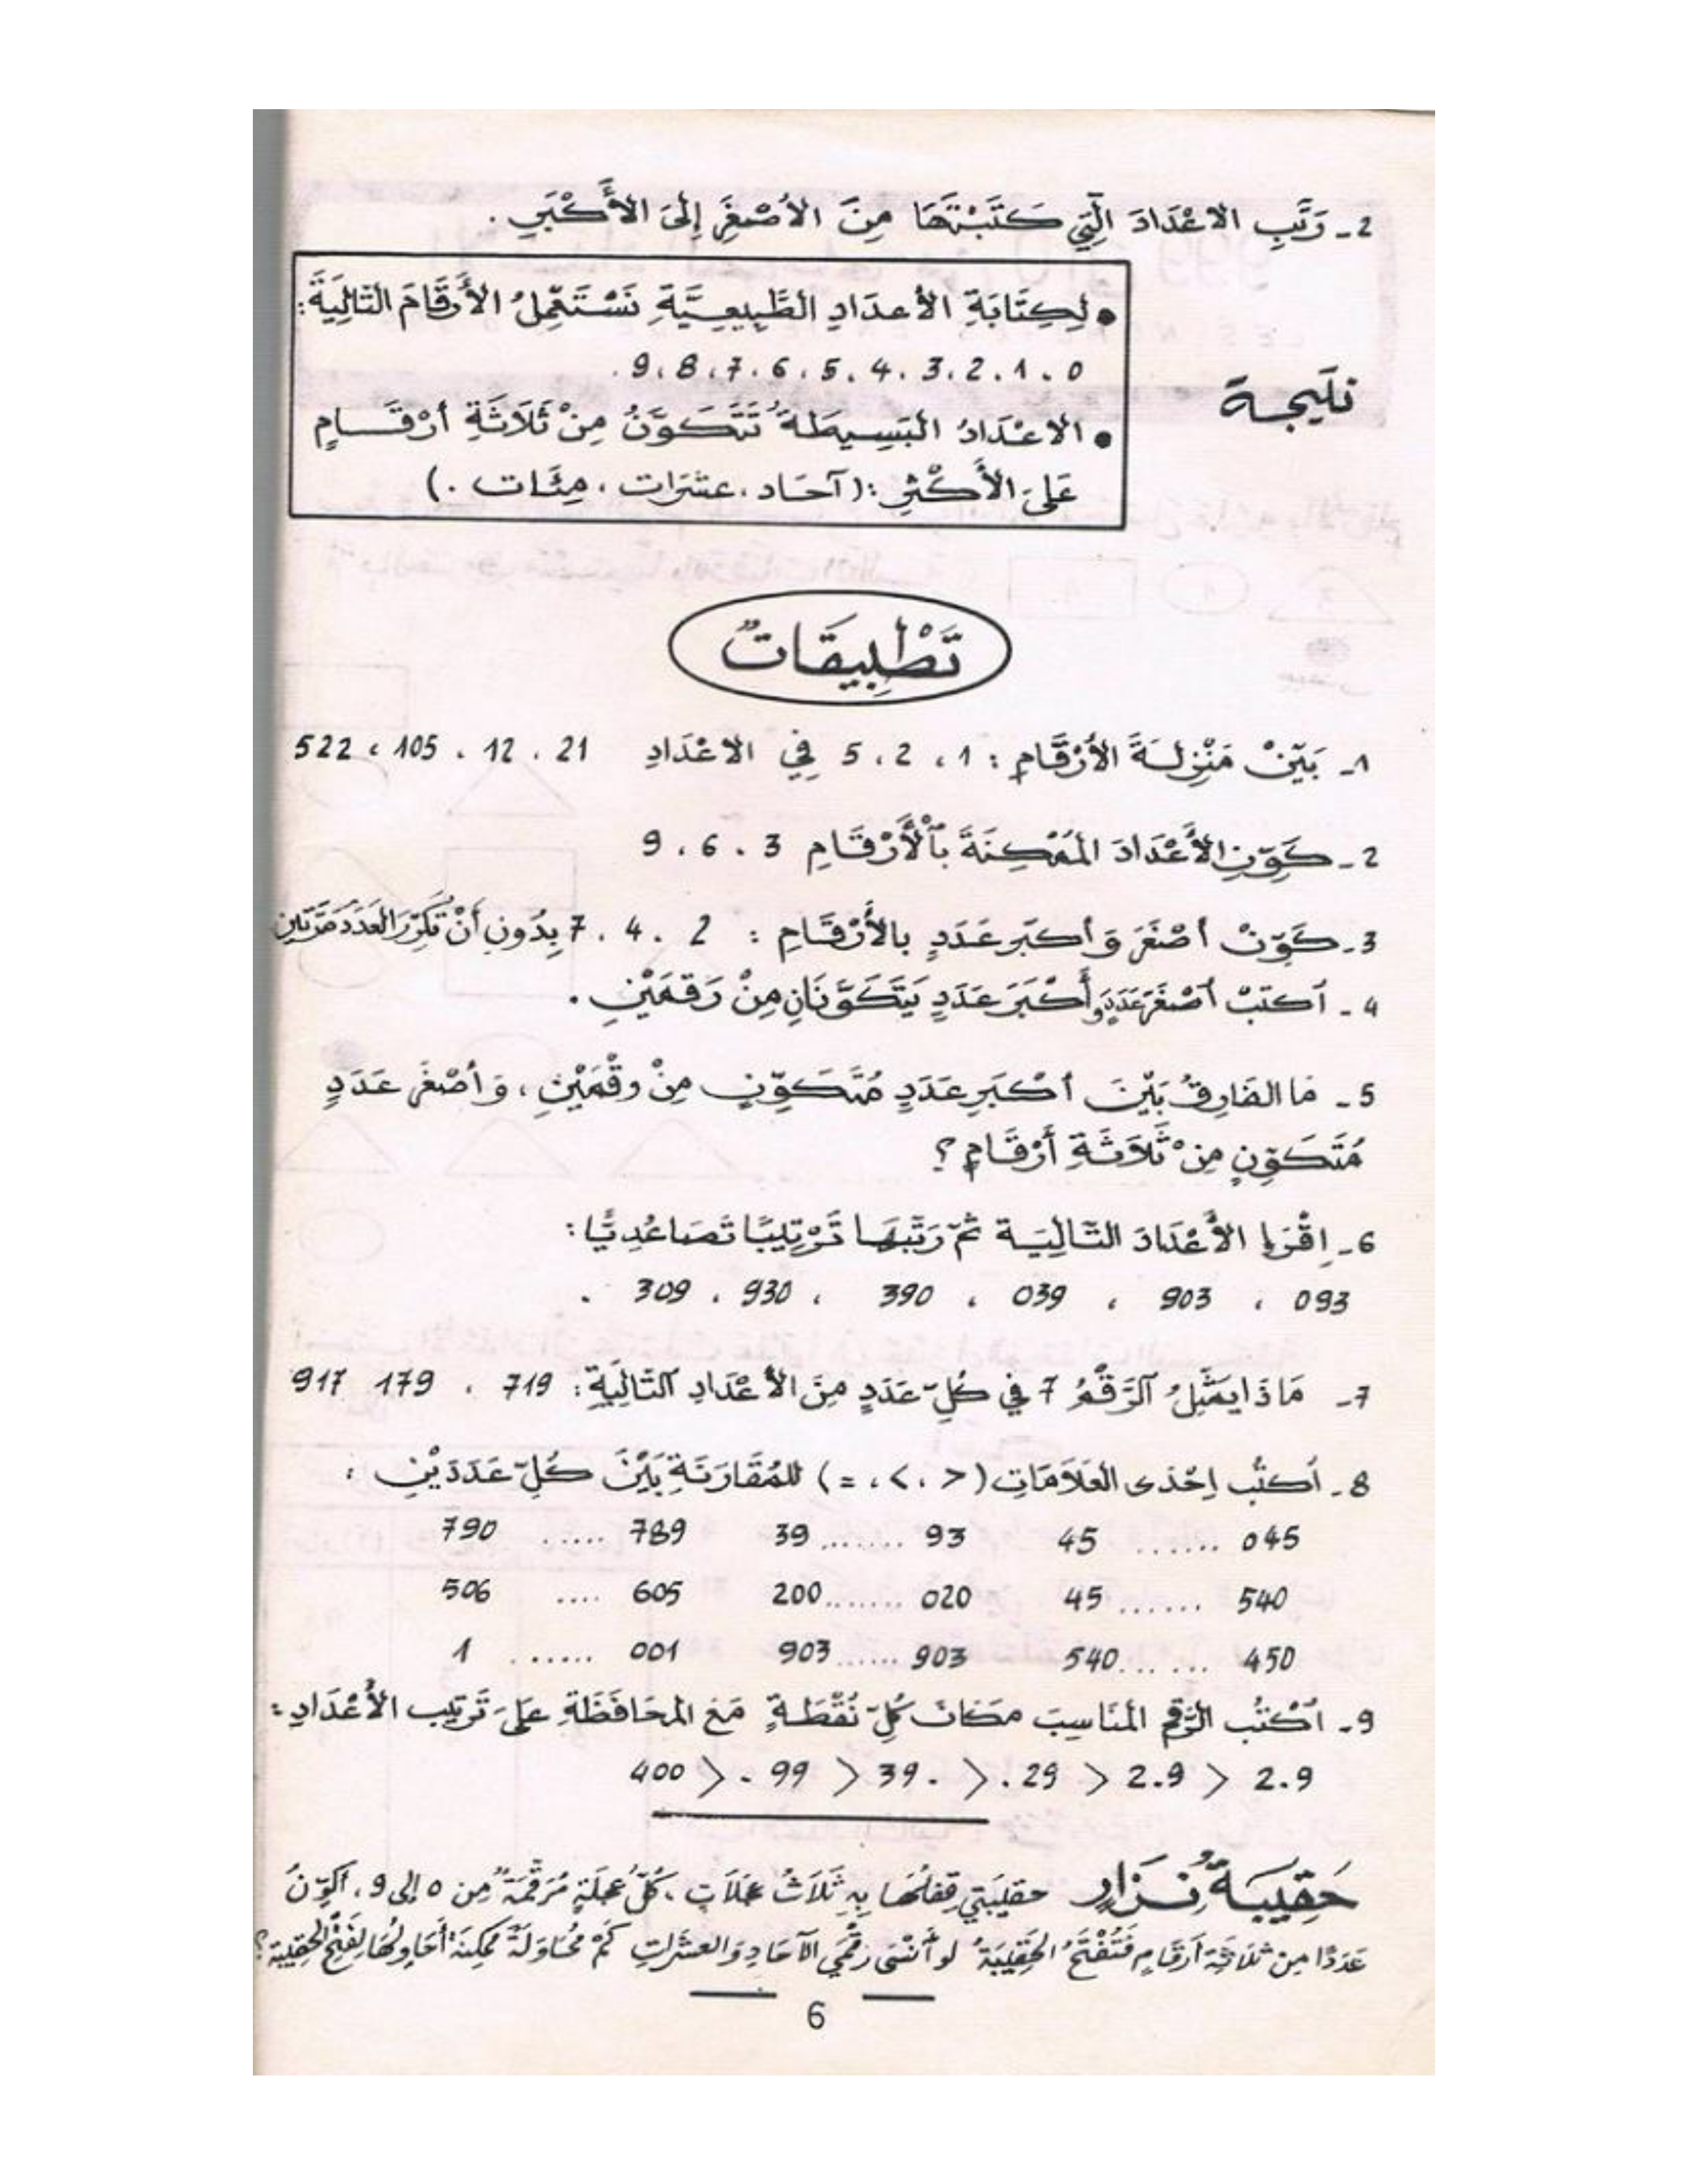 2 - رَتِّبِ الاعْدَادَ الَّتِي كَتَبْتَهَا مِنَ الأصْغَرِ إِلَى الأَكْبَرِ .
• لِكِتَابَةِ الأعدَادِ الطَّبِيعِيَّةِ نَسْتَعْمِلُ الأَرقَامَ التَالِيَةَ :
0 ، 1 ، 2 ، 3 ، 4 ، 5 ، 6 ، 7 ، 8 ، 9 .
نتيجة
• الاعْدَادُ البَسِيطَةُ تَتَكَوَّنُ مِنْ ثَلَاثَةِ أرْقَامٍ
عَلَى الأَكْثَرِ : ( آحَاد ، عشَرَات ، مِئَات . )
تَطْبِيقَاتٌ
1 - بَيِّنْ مَنْزِلَةَ الأرْقَامِ : 1 ، 2 ، 5 فِي الاعْدَادِ 21 ، 12 ، 105 ، 522
2 - كَوِّنِ الأَعْدَادَ المُمْكِنَةَ بِٱلْأَرْقَامِ 3 ، 6 ، 9
3 - كَوِّنْ أصْغَرَ وَ أكبَر عَدَدٍ بالأَرْقَامِ : 2 ، 4 ، 7 بِدُونِ أَنْ تُكَرِّرَ العَدَدَ مَرَّتَينِ
4 - اَكتُبْ أصْغَرَ عَدَدٍ وأَكْبَرَ عَدَدٍ يَتَكَوَّنَانِ مِنْ رَقمَيْنِ .
5 - مَا الفَارِقُ بَيْنَ أكْبَرِ عَدَدٍ مُتَكَوِّنٍ مِنْ رقْمَيْنِ ، وَ أصْغَرِ عَدَدٍ
مُتَكَوِّنٍ مِنْ ثَلَاثَةِ أَرْقَامٍ ؟
6 - اِقْرَإِ الأَعْدَادَ التَّالِيَة ثُمّ رَتِّبْهَا تَرْتِيبًا تَصَاعُدِيًّا :
093 ، 903 ، 039 ، 390 ، 930 ، 309 .
7 - مَاذَا يمَثِّلُ ٱلرَّقْمُ 7 في كُلِّ عَدَدٍ مِنَ الأعْدَادِ ٱلتَّالِيَةِ : 719 ، 179 917
8 - اُكتُب إِحْدَى العَلَامَاتِ ( < ، > ، = ) للمُقَارَنَةِ بَيْنَ كُلِّ عَدَدَيْنِ :
045 ....... 45 93 ....... 39 789 ..... 790
540 ....... 45 020 ....... 200 605 .... 506
450 ....... 540 903 ...... 903 001 ...... 1
9 - اُكْتُب الرَّقم المُنَاسِبَ مكَانَ كُلِّ نُقْطَةٍ مَعَ المحَافَظَةِ عَلَى تَرتِيبِ الأَعْدَادِ :
2.9 < 2.9 > .29 < 39. > .99 < 400
حَقِيبَةُ نِزَارٍ حقيبَتِي قِفلُهَا بِهِ ثَلَاثُ عَجَلَاتٍ ، كُلُّ عجَلَةٍ مُرَقَّمَةٌ مِن 0 إلى 9 ، أكَوِّنُ
عَدَدًا مِنْ ثلَاثَةِ أَرقَامٍ فَتُفْتَحُ الحَقِيبَةُ لَو أَنْسَى رقْمَيِ الآحَادِ وَالعشَرَاتِ كَمْ مُحَاوَلَةً مُمكِنَةً أُحَاوِلُهَا لِفَتْحِ الحقِيبَةِ ؟
6